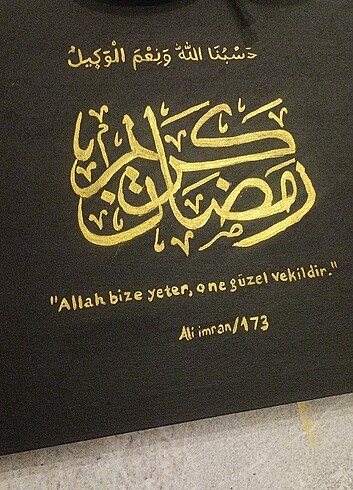 حَسْبُنَا اللهُ وَنِعْمَ الْوَكِيلُ
رمضان كريم
"Allah bize yeter, o ne güzel vekildir."
Ali imran/173